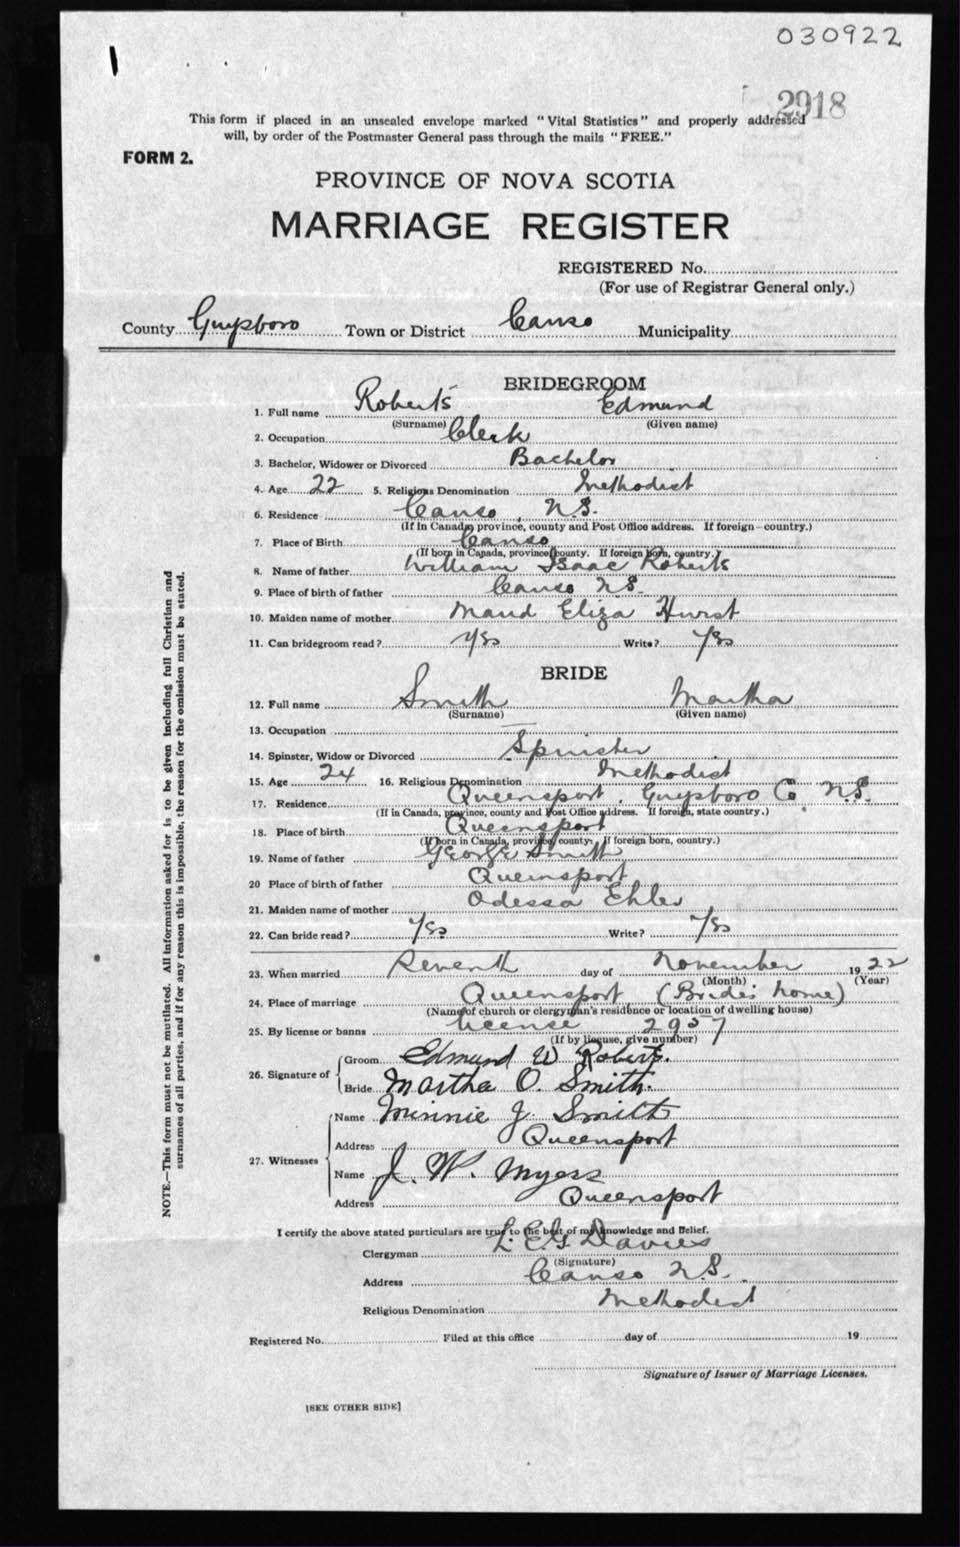 030922
2918
This form if placed in an unsealed envelope marked "Vital Statistics" and properly addressed
will, by order of the Postmaster General pass through the mails "FREE."
FORM 2.
PROVINCE OF NOVA SCOTIA
MARRIAGE REGISTER
REGISTERED No.
(For use of Registrar General only.)
County Guysboro Town or District Canso Municipality
BRIDEGROOM
1. Full name Roberts Edmund
(Surname) (Given name)
2. Occupation Clerk
3. Bachelor, Widower or Divorced Bachelor
4. Age 22 5. Religious Denomination Methodist
6. Residence Canso, N.S.
(If in Canada, province, county and Post Office address. If foreign-country.)
7. Place of Birth Canso
(If born in Canada, province, county. If foreign born, country.)
8. Name of father William Isaac Roberts
9. Place of birth of father Canso N.S.
10. Maiden name of mother Maud Eliza Hurst
11. Can bridegroom read? Yes Write? Yes
BRIDE
12. Full name Smith Martha
(Surname) (Given name)
13. Occupation —
14. Spinster, Widow or Divorced Spinster
15. Age 24 16. Religious Denomination Methodist
17. Residence Queensport, Guysboro Co. N.S.
(If in Canada, province, county and Post Office address. If foreign, state country.)
18. Place of birth Queensport
(If born in Canada, province, county. If foreign born, country.)
19. Name of father George Smith
20 Place of birth of father Queensport
21. Maiden name of mother Odessa Ehler
22. Can bride read? Yes Write? Yes
23. When married Seventh day of November 1922
(Month) (Year)
24. Place of marriage Queensport (Brides home)
(Name of church or clergyman's residence or location of dwelling house)
25. By license or banns license 2957
(If by license, give number)
26. Signature of Groom Edmund W Roberts.
Bride Martha O. Smith.
27. Witnesses Name Minnie J. Smith
Address Queensport
Name J. W. Myers
Address Queensport
I certify the above stated particulars are true to the best of my knowledge and belief.
Clergyman L. E. G. Davies
(Signature)
Address Canso N.S.
Religious Denomination Methodist
Registered No. Filed at this office day of 19
Signature of Issuer of Marriage Licenses.
[SEE OTHER SIDE]
NOTE.—This form must not be mutilated. All information asked for is to be given including full Christian and
surnames of all parties, and if for any reason this is impossible, the reason for the omission must be stated.